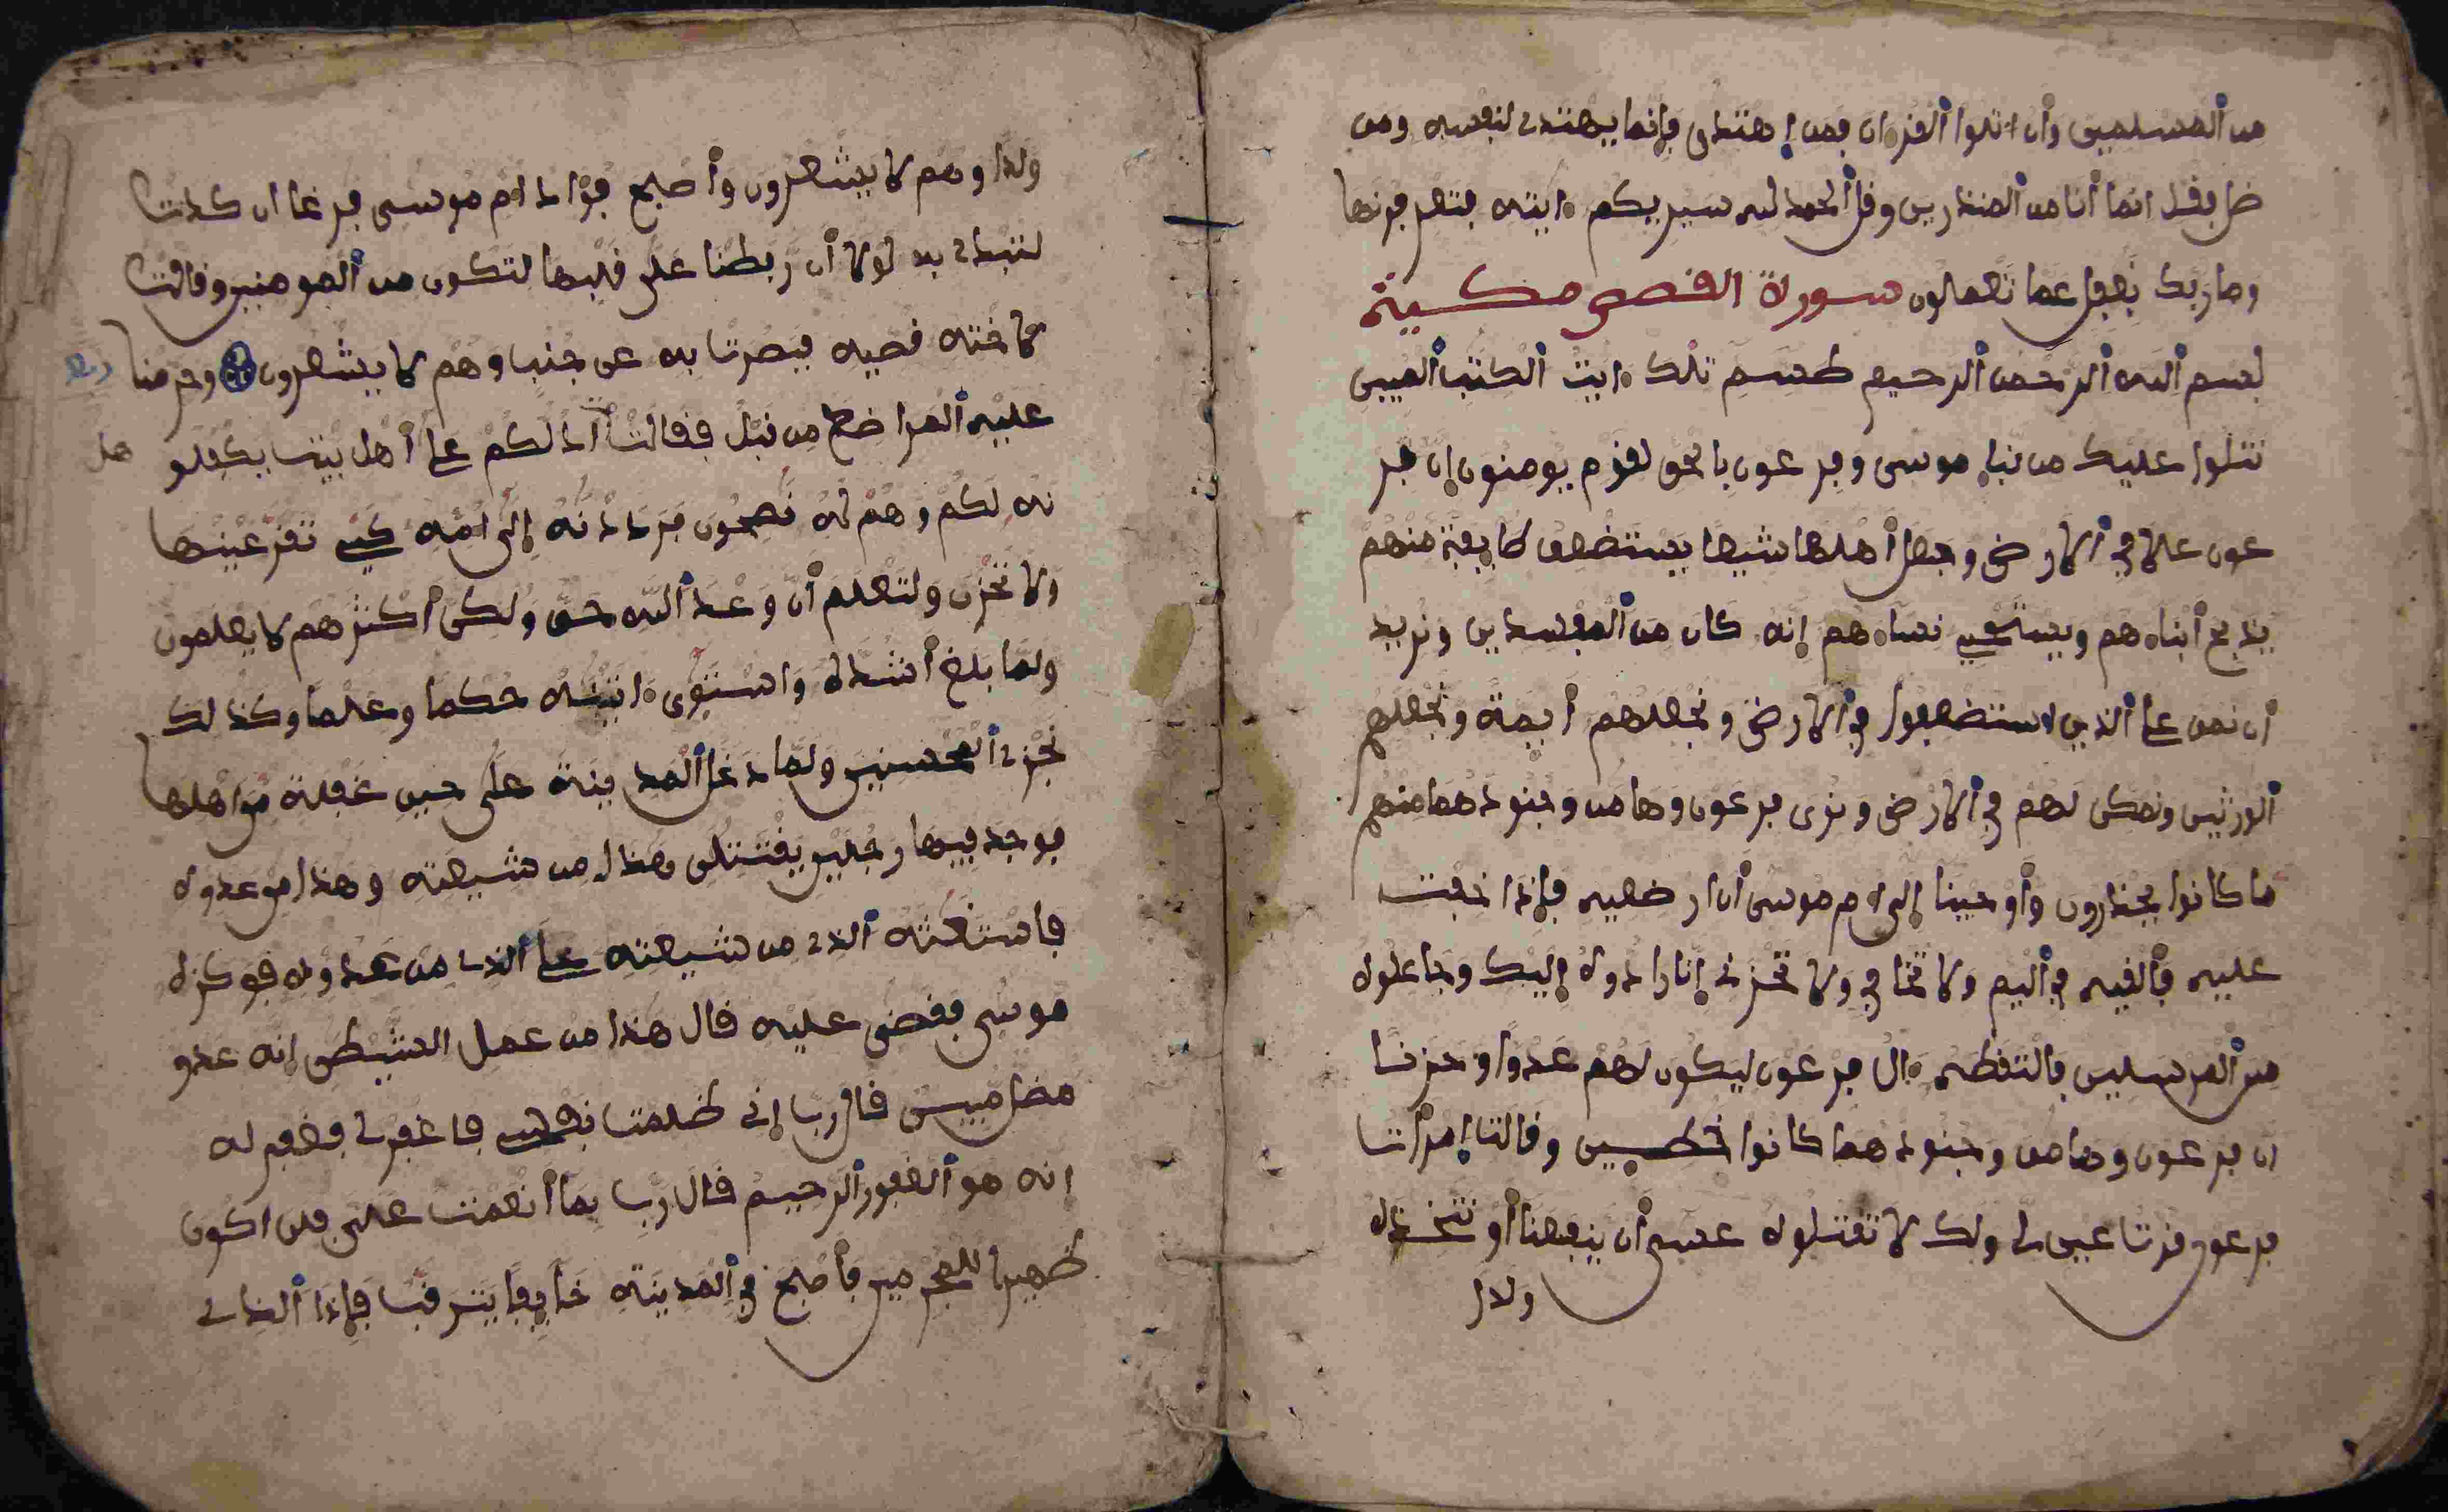 من ألمسلمين وأن اتلوا ألقرءان فمن إهتدى فإنما يهتدى لنفسه ومن
ضل فقل انما أنا من ألمنذرين وقل ألحمد لله سيريكم ءايته فتعرفونها
وما ربك بغفل عما تعملون سورة القصص مكية
بسم ألله ألرحمن ألرحيم طسم تلك ءايت ألكتب ألمبين
نتلوا عليك من نبإ موسى وفرعون بالحق لقوم يومنون إن فر
عون علا في ألارض وجعل أهلها شيعا يستضعف طايفة منهم
يذبح أبناءهم ويستحي نساءهم إنه كان من ألمفسدين ونريد
أن نمن على ألذين استضعفوا في ألارض ونجعلهم أيمة ونجعلهم
ألورثين ونمكن لهم في ألارض ونرى فرعون وهامن وجنودهما منهم
ما كانوا يحذرون وأوحينا إلى ام موسى أن ارضعيه فإذا خفت
عليه فألقيه في أليم ولا تخافي ولا تحزني إنا رادوه إليك وجاعلوه
من ألمرسلين فالتقطه ءال فرعون ليكون لهم عدوا وحزنا
ان فرعون وهامن وجنودهما كانوا خطين وقالت إمرأت
فرعون قرت عين لى ولك لا تقتلوه عسى أن ينفعنا أو نتخذه
ولدا
ولدا وهم لا يشعرون وأصبح فؤاد ام موسى فرغا ان كدت
لتبدى به لولا أن ربطنا على قلبها لتكون من ألمومنين وقالت
لاخته قصيه فبصرت به عن جنب وهم لا يشعرون وحرمنا ربع
عليه ألمراضع من قبل فقالت أدلكم على أهل بيت يكفلو هل
نه لكم وهم له نصحون فرددنه إلى امه كي تقر عينها
ولا تحزن ولتعلم أن وعد ألله حق ولكن أكثرهم لا يعلمون
ولما بلغ أشده واستوى ءاتينه حكما وعلما وكذلك
نجزى ألمحسنين ولما دخل ألمدينة على حين غفلة من اهلها
فوجد فيها رجلين يقتتلن هذا من شيعته وهذا من عدوه
فاستغثه ألذى من شيعته على ألذى من عدوه فوكزه
موسى فقضى عليه قال هذا من عمل الشيطن إنه عدو
مضل مبين قال رب إنى ظلمت نفسي فاغفر لى فغفر له
انه هو ألغفور ألرحيم قال رب بما أنعمت على فلن اكون
ظهيرا للمجرمين فأصبح في ألمدينة خايفا يترقب فإذا ألذى